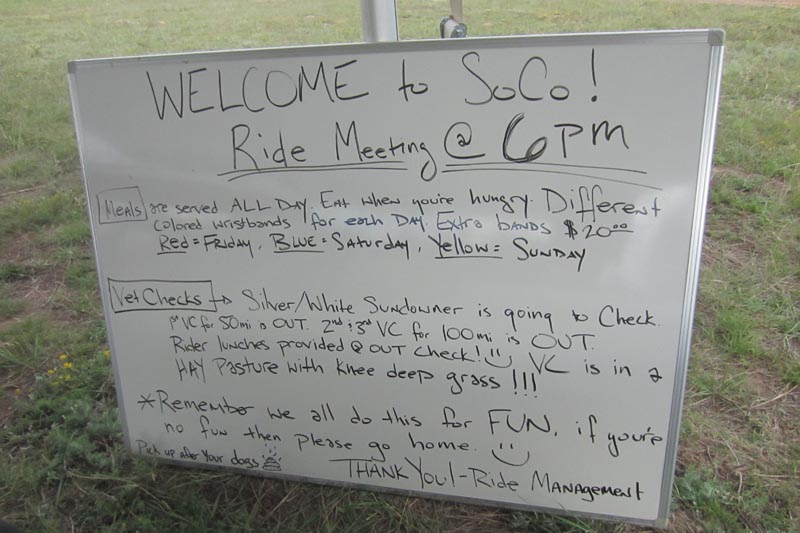 WELCOME to SoCo!
Ride Meeting @ 6PM
Meals are served ALL DAY. Eat when you're hungry. Different
colored wristbands for each DAY. Extra bands $20.00
Red = Friday, Blue = Saturday, Yellow = Sunday
Vet Checks → Silver/White Sundowner is going to Check.
1st VC for 50mi is OUT. 2nd & 3rd VC for 100mi is OUT.
Rider lunches provided @ OUT Check! VC is in a
HAY Pasture with knee deep grass!!!
*Remember we all do this for FUN, if you're
no fun then please go home.
Pick up after your dogs
THANK YOU! - Ride Management